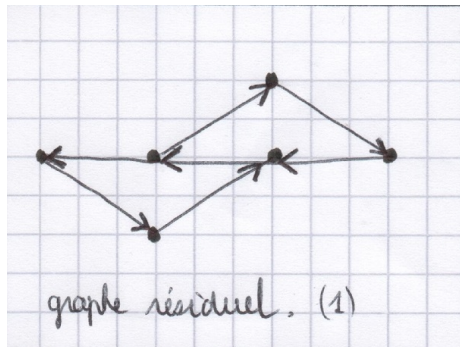 graphe résiduel. (1)